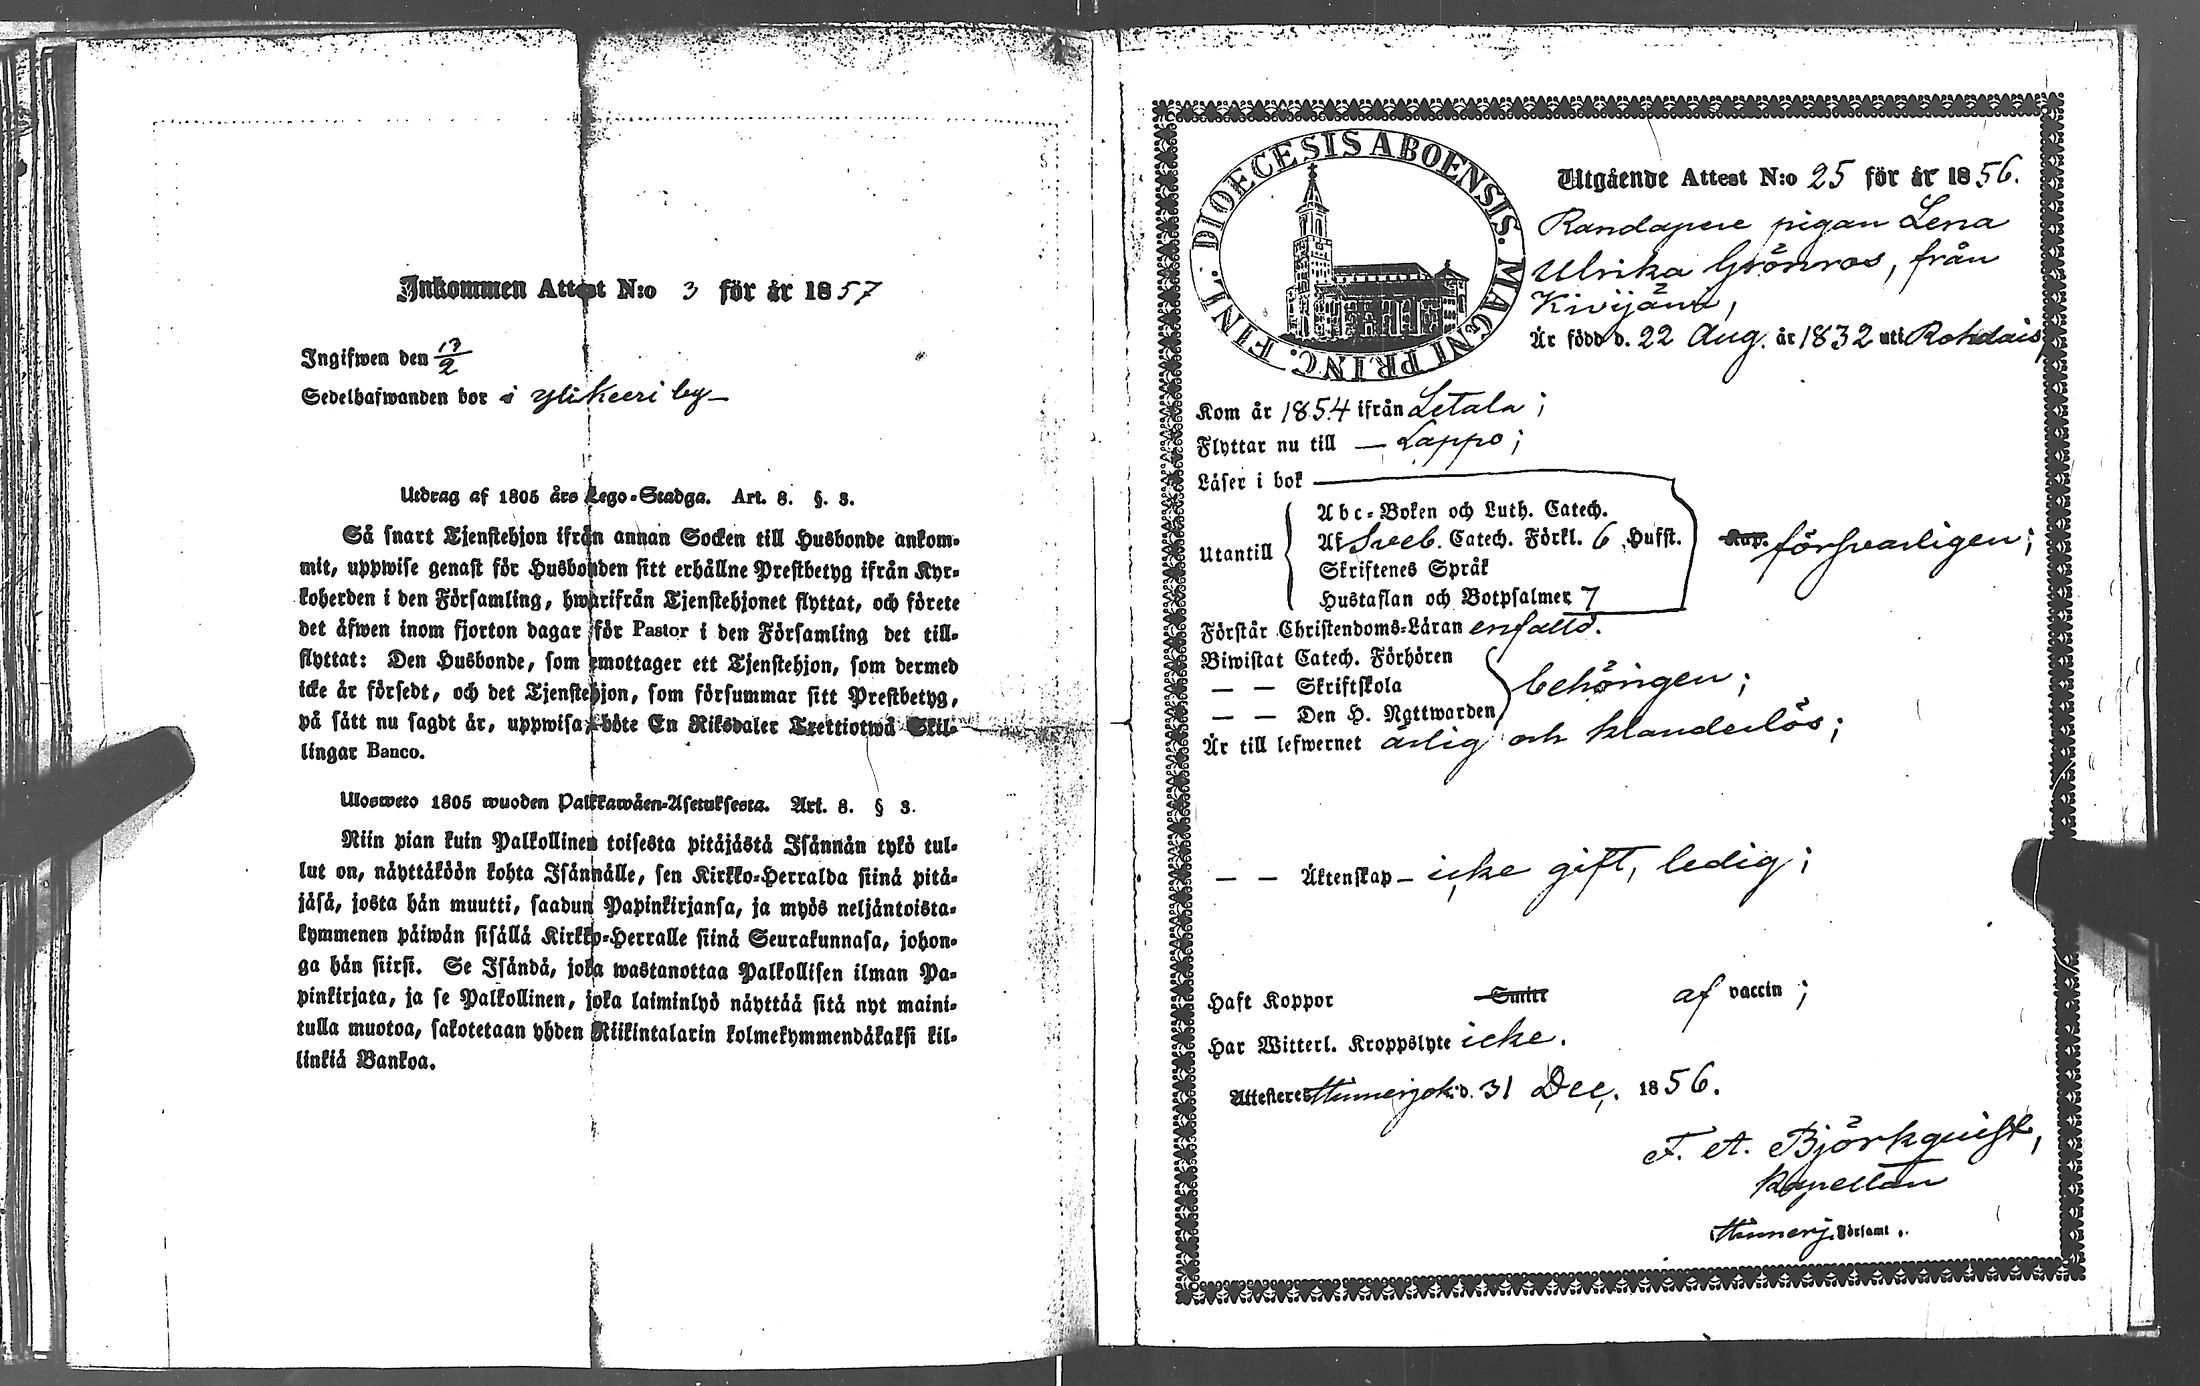 Inkommen Attest N:o 3 för år 1857
Ingifwen den 13/2
Sedelhafwanden bor i Ylikeeri by
Utdrag af 1805 års Lego-Stadga. Art. 8. §. 3.
Så snart Tjenstehjon ifrån annan Socken till Husbonde ankom-
mit, uppwise genast för Husbonden sitt erhållne Prestbetyg ifrån Kyr-
koherden i den Församling, hwarifrån Tjenstehjonet flyttat, och förete
det äfwen inom fjorton dagar för Pastor i den Församling det till-
flyttat: Den Husbonde, som emottager ett Tjenstehjon, som dermed
icke är försedt, och det Tjenstehjon, som försummar sitt Prestbetyg,
på sätt nu sagdt är, uppwisa, böte En Riksdaler Trettiotwå Skil-
lingar Banco.
Ulosweto 1805 wuoden Palkkawäen-Asetuksesta. Art. 8. § 3.
Niin pian kuin Palkollinen toisesta pitäjästä Isännän tykö tul-
lut on, näyttäköön kohta Isännälle, sen Kirkko-Herralda siinä pitä-
jäsä, josta hän muutti, saadun Papinkirjansa, ja myös neljäntoista-
kymmenen päiwän sisällä Kirkko-Herralle siinä Seurakunnasa, johon-
ga hän siirsi. Se Isändä, joka wastanottaa Palkollisen ilman Pa-
pinkirjata, ja se Palkollinen, joka laiminlyö näyttää sitä nyt maini-
tulla muotoa, sakotetaan yhden Riikintalarin kolmekymmendäkaksi kil-
linkiä Bankoa.
DIOECESIS ABOENSIS. MAGNI PRINC. FINL.
Utgående Attest N:o 25 för år 1856.
pigan Lena
Ulrika Grönroos, från
Kivijärvi,
Är född d. 22 Aug. år 1832 uti Rohdais
Kom år 1854 ifrån Letala;
Flyttar nu till — Lappo;
Läser i bok
Utantill
Abc-Boken och Luth. Catech.
Af Sveb. Catech. Förkl. 6 Hufst.
Skriftenes Språk
Hustaflan och Botpsalmer 7
Kap. försvarligen;
Förstår Christendoms-Läran enfaldd.
Biwistat Catech. Förhören
— — Skriftskola
— — Den H. Nattwarden
behörigen;
Är till lefwernet ärlig och klanderlös;
— — Äktenskap — icke gift, ledig;
Haft Koppor Smitt af vaccin;
Har Witterl. Kroppslyte icke.
Attesteres Hinnerjoki d. 31 Dec. 1856.
F. A. Björkquist,
Kapellan
Hinnerj. Församl.